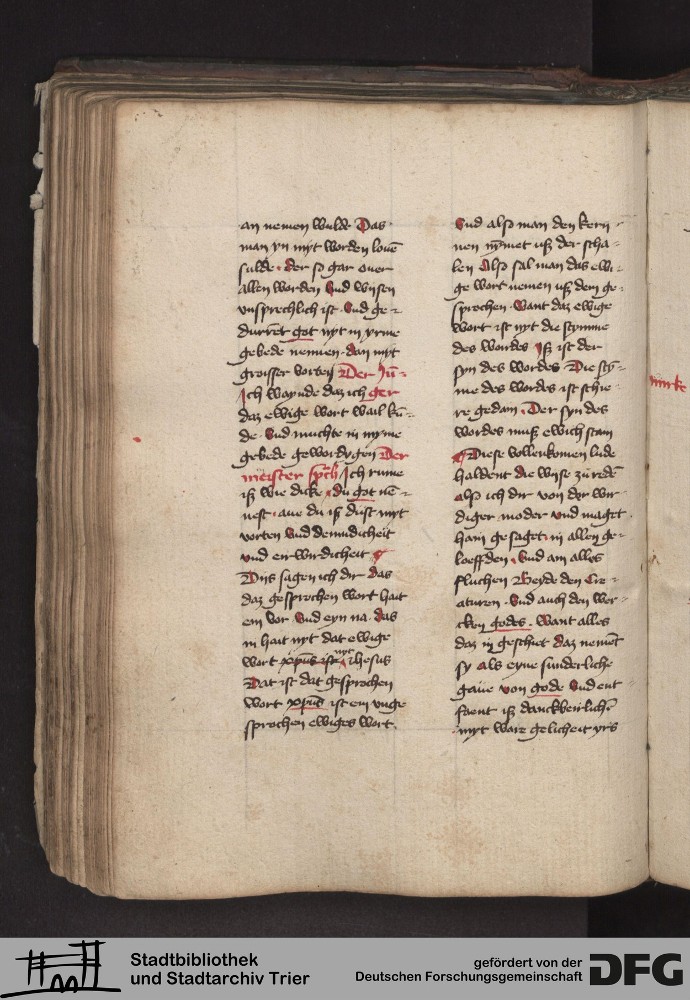 an nemen wulde Das
man yn myt worden louē
sulde · der so gar ouer
allen worden Vnd wysen
vnsprechlich ist · Vnd ge-
durret got nyt in yrme
gebede nennen · dan myt
groisser vorten Der Jū-
Ich waynde daz ich ger
daz ewige wort wail kū-
de · Vnd muchte in myme
gebede gewordygen Der
meister sp̄ch Ich rume
iß wie dicke · du got nē-
nest · aue du iß dust myt
vorten Vnd demudicheit
vnd eirwirdicheit
Dus sagen ich dir das
daz gesprochen wort hait
ein vor · Vnd eyn na · das
in hait nyt dat ewige
wort xp̄us ist nyt Ihesus
Dat ist dat gesprochen
wort xp̄us ist ein vnge
sprochen ewiges wort ·
Vnd also man den kern-
nen nȳmet uß der scha-
len Also sal man das ewi-
ge wort nemen uß dem ge-
sprochen · Want daz ewige
wort ist nyt die stymme
des wordes Iß ist der
syn des wordes Die stȳ-
me des wordes ist schie-
re gedain · Der syn des
wordes muß ewich stain
Diese vollenkomen lude
haldent die wyse zů redē
also ich dir von der wir
diger moder vnd maget
hain gesaget in allen ge-
loeffden · Vnd an alles
fluchen Beyde den Cre-
aturen · Vnd auch den wer-
cken godes · Want alles
daz in geschiet daz nement
sy als eyne sunderliche
gaue von gode Vnd ent
faent iß danckberlich
myt ware gelicheit yrs
mirke
Stadtbibliothek
und Stadtarchiv Trier
gefördert von der
Deutschen Forschungsgemeinschaft
DFG